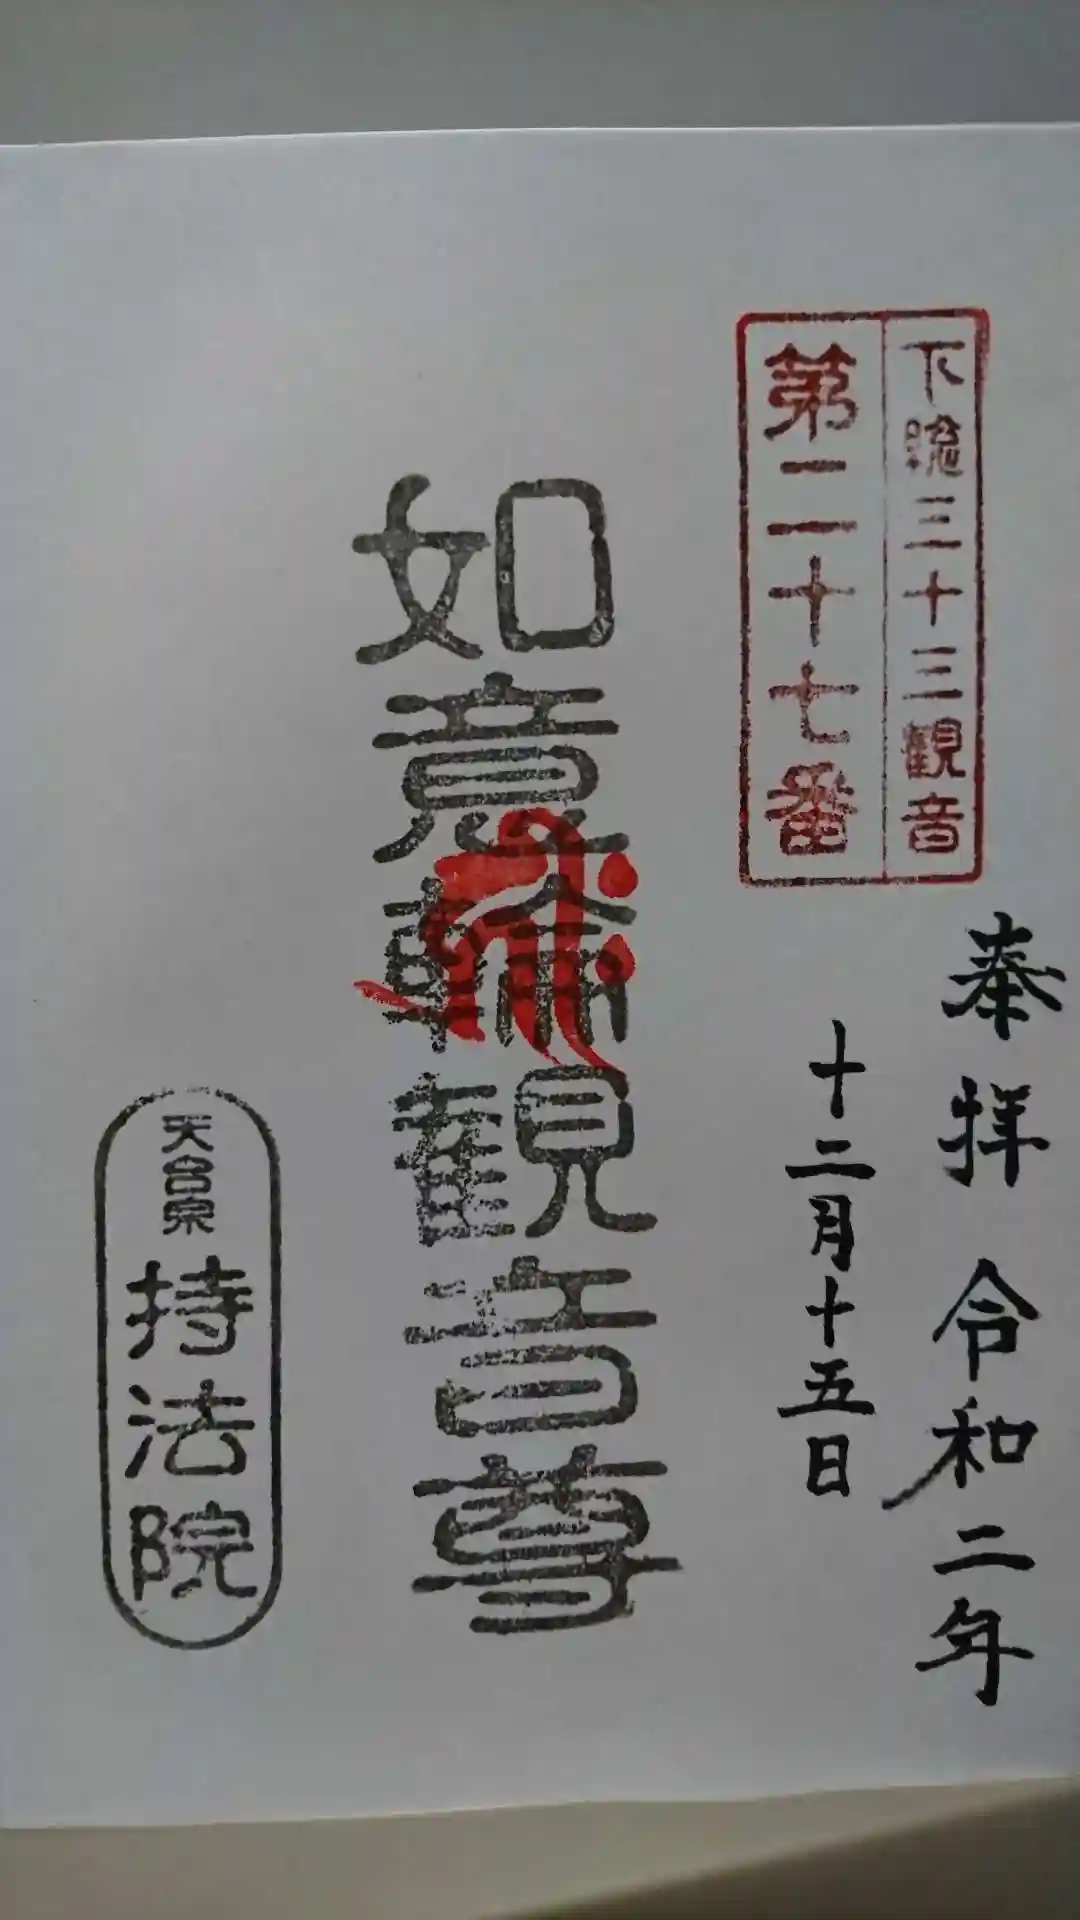 下総三十三観音
第二十七番
奉拝 令和二年
十二月十五日
如意輪観音尊
天台宗
持法院